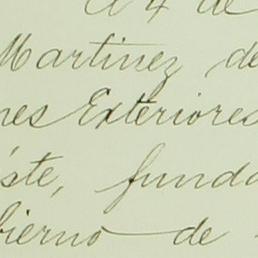 el 4 de
Martinez de
nes Exteriores
éste, funda
bierno de